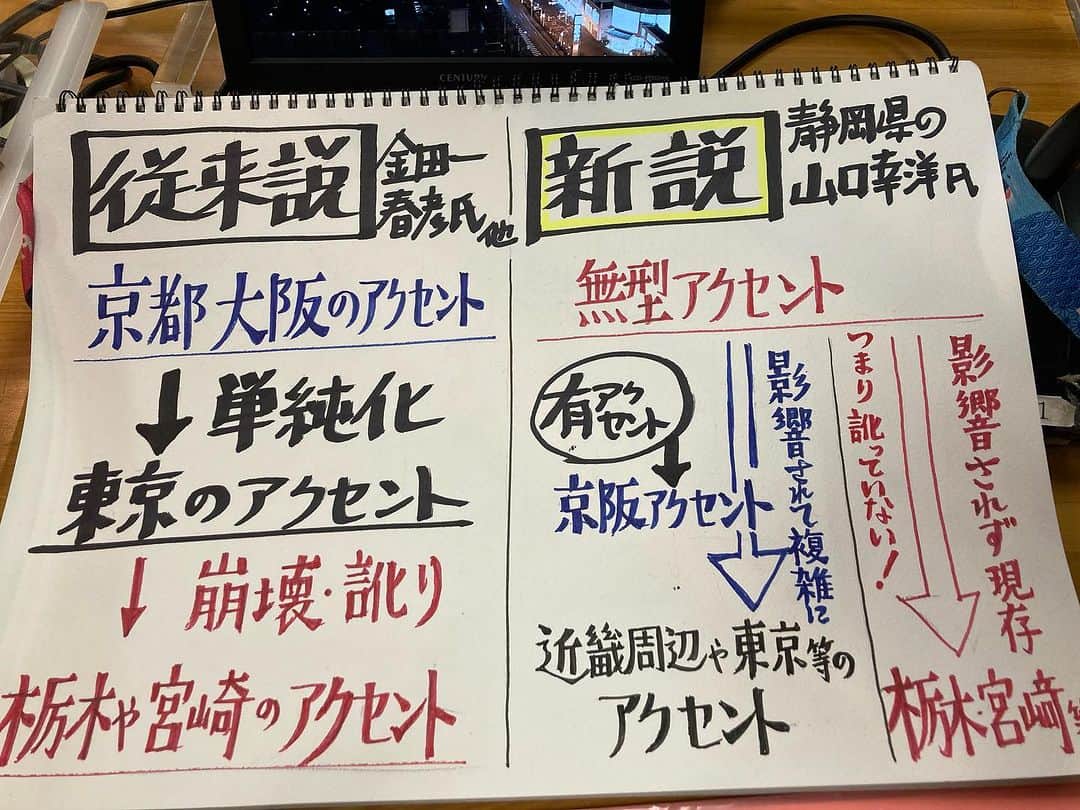 CENTURY
従来説
金田一
春彦氏
他
京都大阪のアクセント
単純化
東京のアクセント
崩壊・訛り
栃木や宮崎のアクセント
新説
静岡県の
山口幸洋氏
無型アクセント
有アク
セント
京阪アクセント
影響されて複雑に
近畿周辺や東京等の
アクセント
つまり訛っていない!
影響されず現存
栃木・宮崎等
1